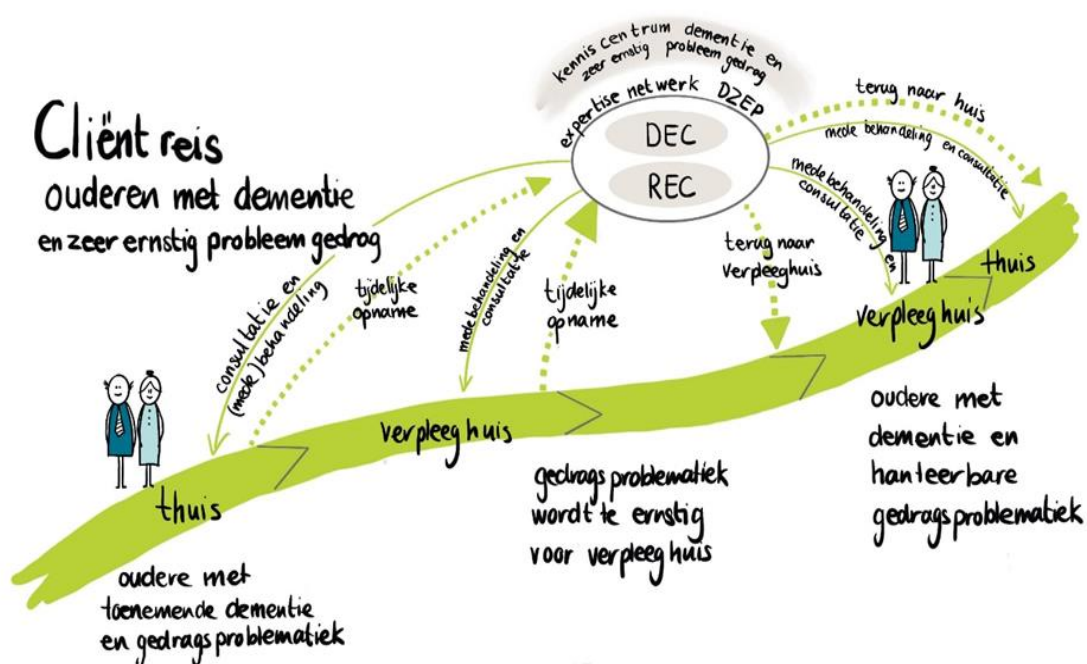 Cliënt reis
ouderen met dementie
en zeer ernstig probleem gedrag
kennis centrum dementie en
zeer ernstig probleem gedrag
expertise netwerk DZEP
DEC
REC
consultatie en
(mede)behandeling
tijdelijke
opname
medebehandeling en
consultatie
tijdelijke
opname
terug naar
verpleeghuis
medebehandeling en
consultatie
mede behandeling en consultatie
terug naar huis
thuis
verpleeg huis
verpleeg huis
thuis
oudere met
toenemende dementie
en gedragsproblematiek
gedragsproblematiek
wordt te ernstig
voor verpleeg huis
oudere met
dementie en
hanteerbare
gedragsproblematiek